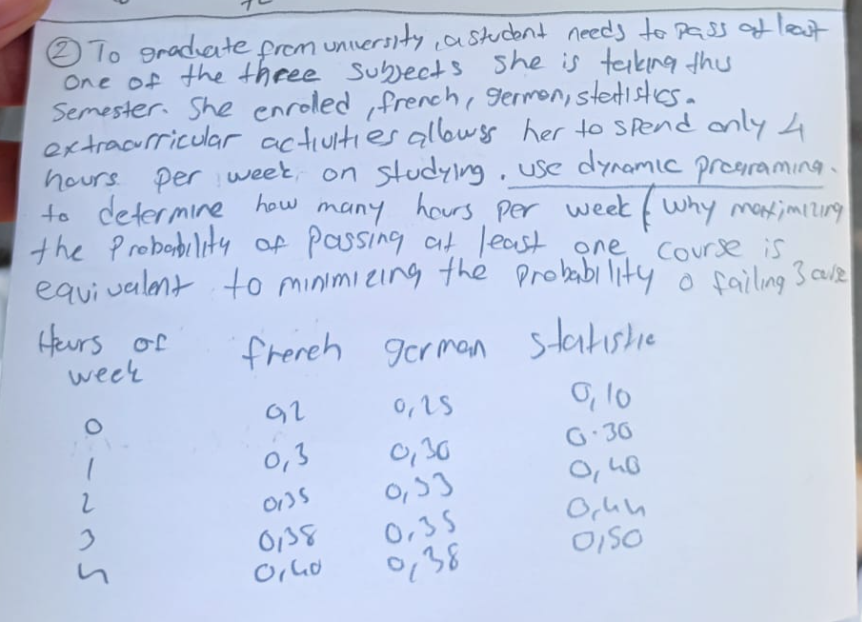 ② To graduate from university, a student needs to pass at least
one of the three subjects she is taking this
Semester. She enroled, french, german, statistics.
extracurricular activities allows her to spend only 4
hours per week on studying. use dynamic programing.
to determine how many hours per week ( why maximizing
the probability of passing at least one course is
equivalent to minimizing the probability o failing 3
Hours of french german statistic
week
0 0,2 0,25 0,10
1 0,3 0,30 0.30
2 0,35 0,33 0,40
3 0,38 0,35 0,44
4 0,40 0,38 0,50